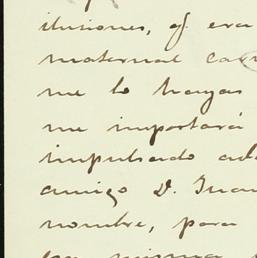 ilusiones, q. era
maternal
me lo hayas
me importará
impulsado
amigo D. Juan
nombre, para
misma